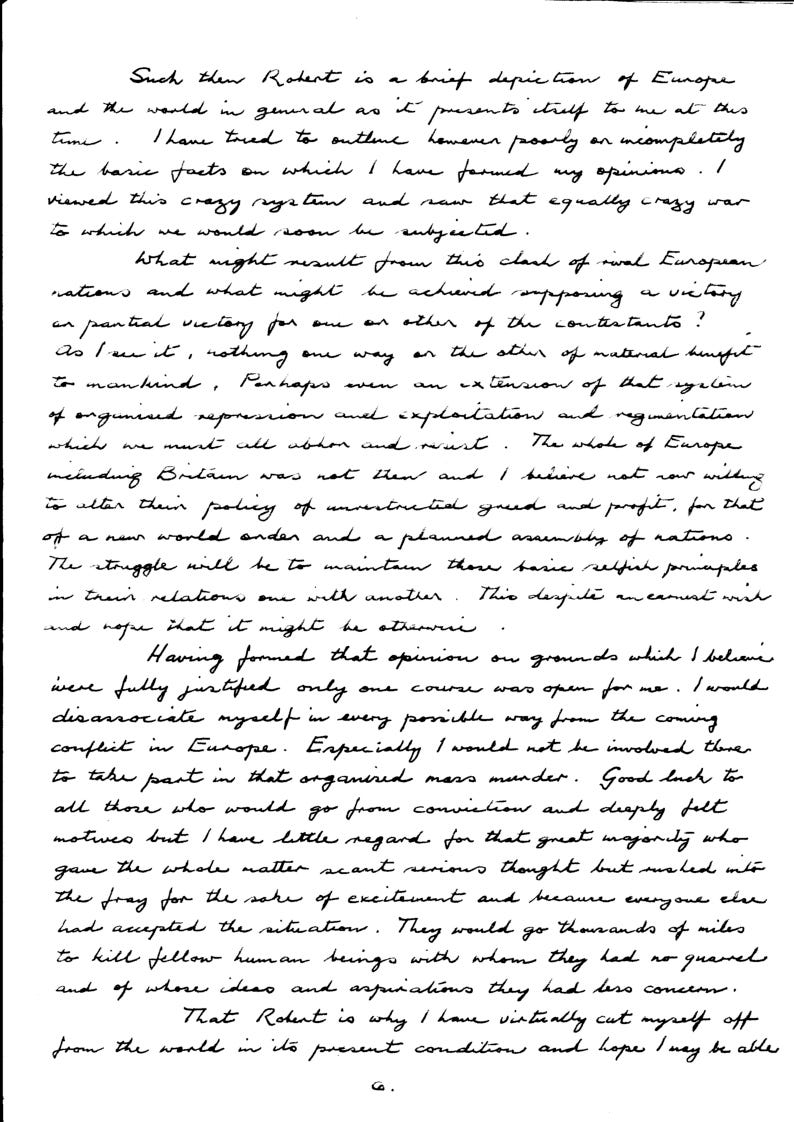 Such then Robert is a brief depiction of Europe
and the world in general as it presents itself to me at this
time. I have tried to outline however poorly or incompletely
the basic facts on which I have formed my opinions. I
viewed this crazy system and saw that equally crazy war
to which we would soon be subjected.
What might result from this clash of rival European
nations and what might be achieved supposing a victory
or partial victory for one or other of the contestants?
As I see it, nothing one way or the other of material benefit
to mankind, Perhaps even an extension of that system
of organised repression and exploitation and regimentation
which we must all abhor and resist. The whole of Europe
including Britain was not then and I believe not now willing
to alter their policy of unrestricted greed and profit, for that
of a new world order and a planned assembly of nations.
The struggle will be to maintain those basic selfish principles
in their relations one with another. This despite an earnest wish
and hope that it might be otherwise.
Having formed that opinion on grounds which I believe
were fully justified only one course was open for me. I would
disassociate myself in every possible way from the coming
conflict in Europe. Especially I would not be involved there
to take part in that organised mass murder. Good luck to
all those who would go from conviction and deeply felt
motives but I have little regard for that great majority who
gave the whole matter scant serious thought but rushed into
the fray for the sake of excitement and because everyone else
had accepted the situation. They would go thousands of miles
to kill fellow human beings with whom they had no quarrel
and of whose ideas and aspirations they had less concern.
That Robert is why I have virtually cut myself off
from the world in its present condition and hope I may be able
6.